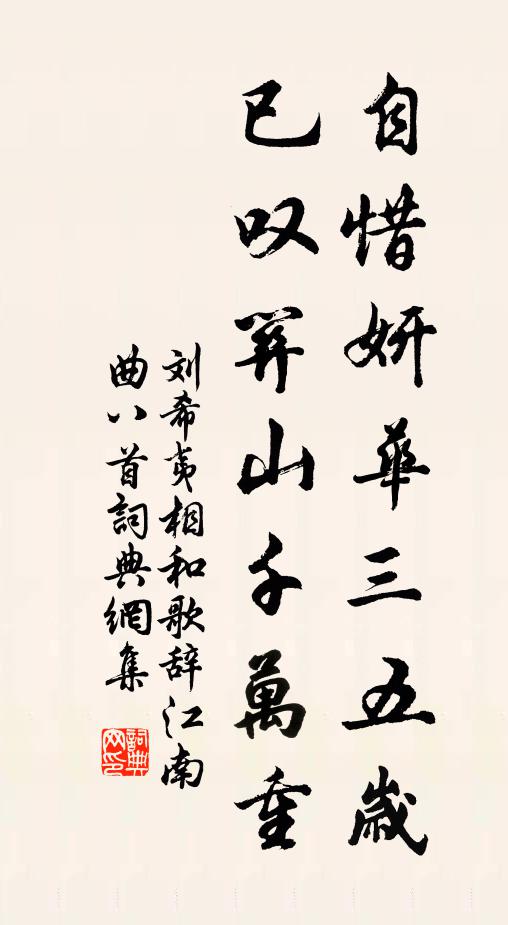 自惜妍華三五歲
已叹關山千萬重
刘希夷相和歌辞江南
曲八首詞典網集
詞典
网印